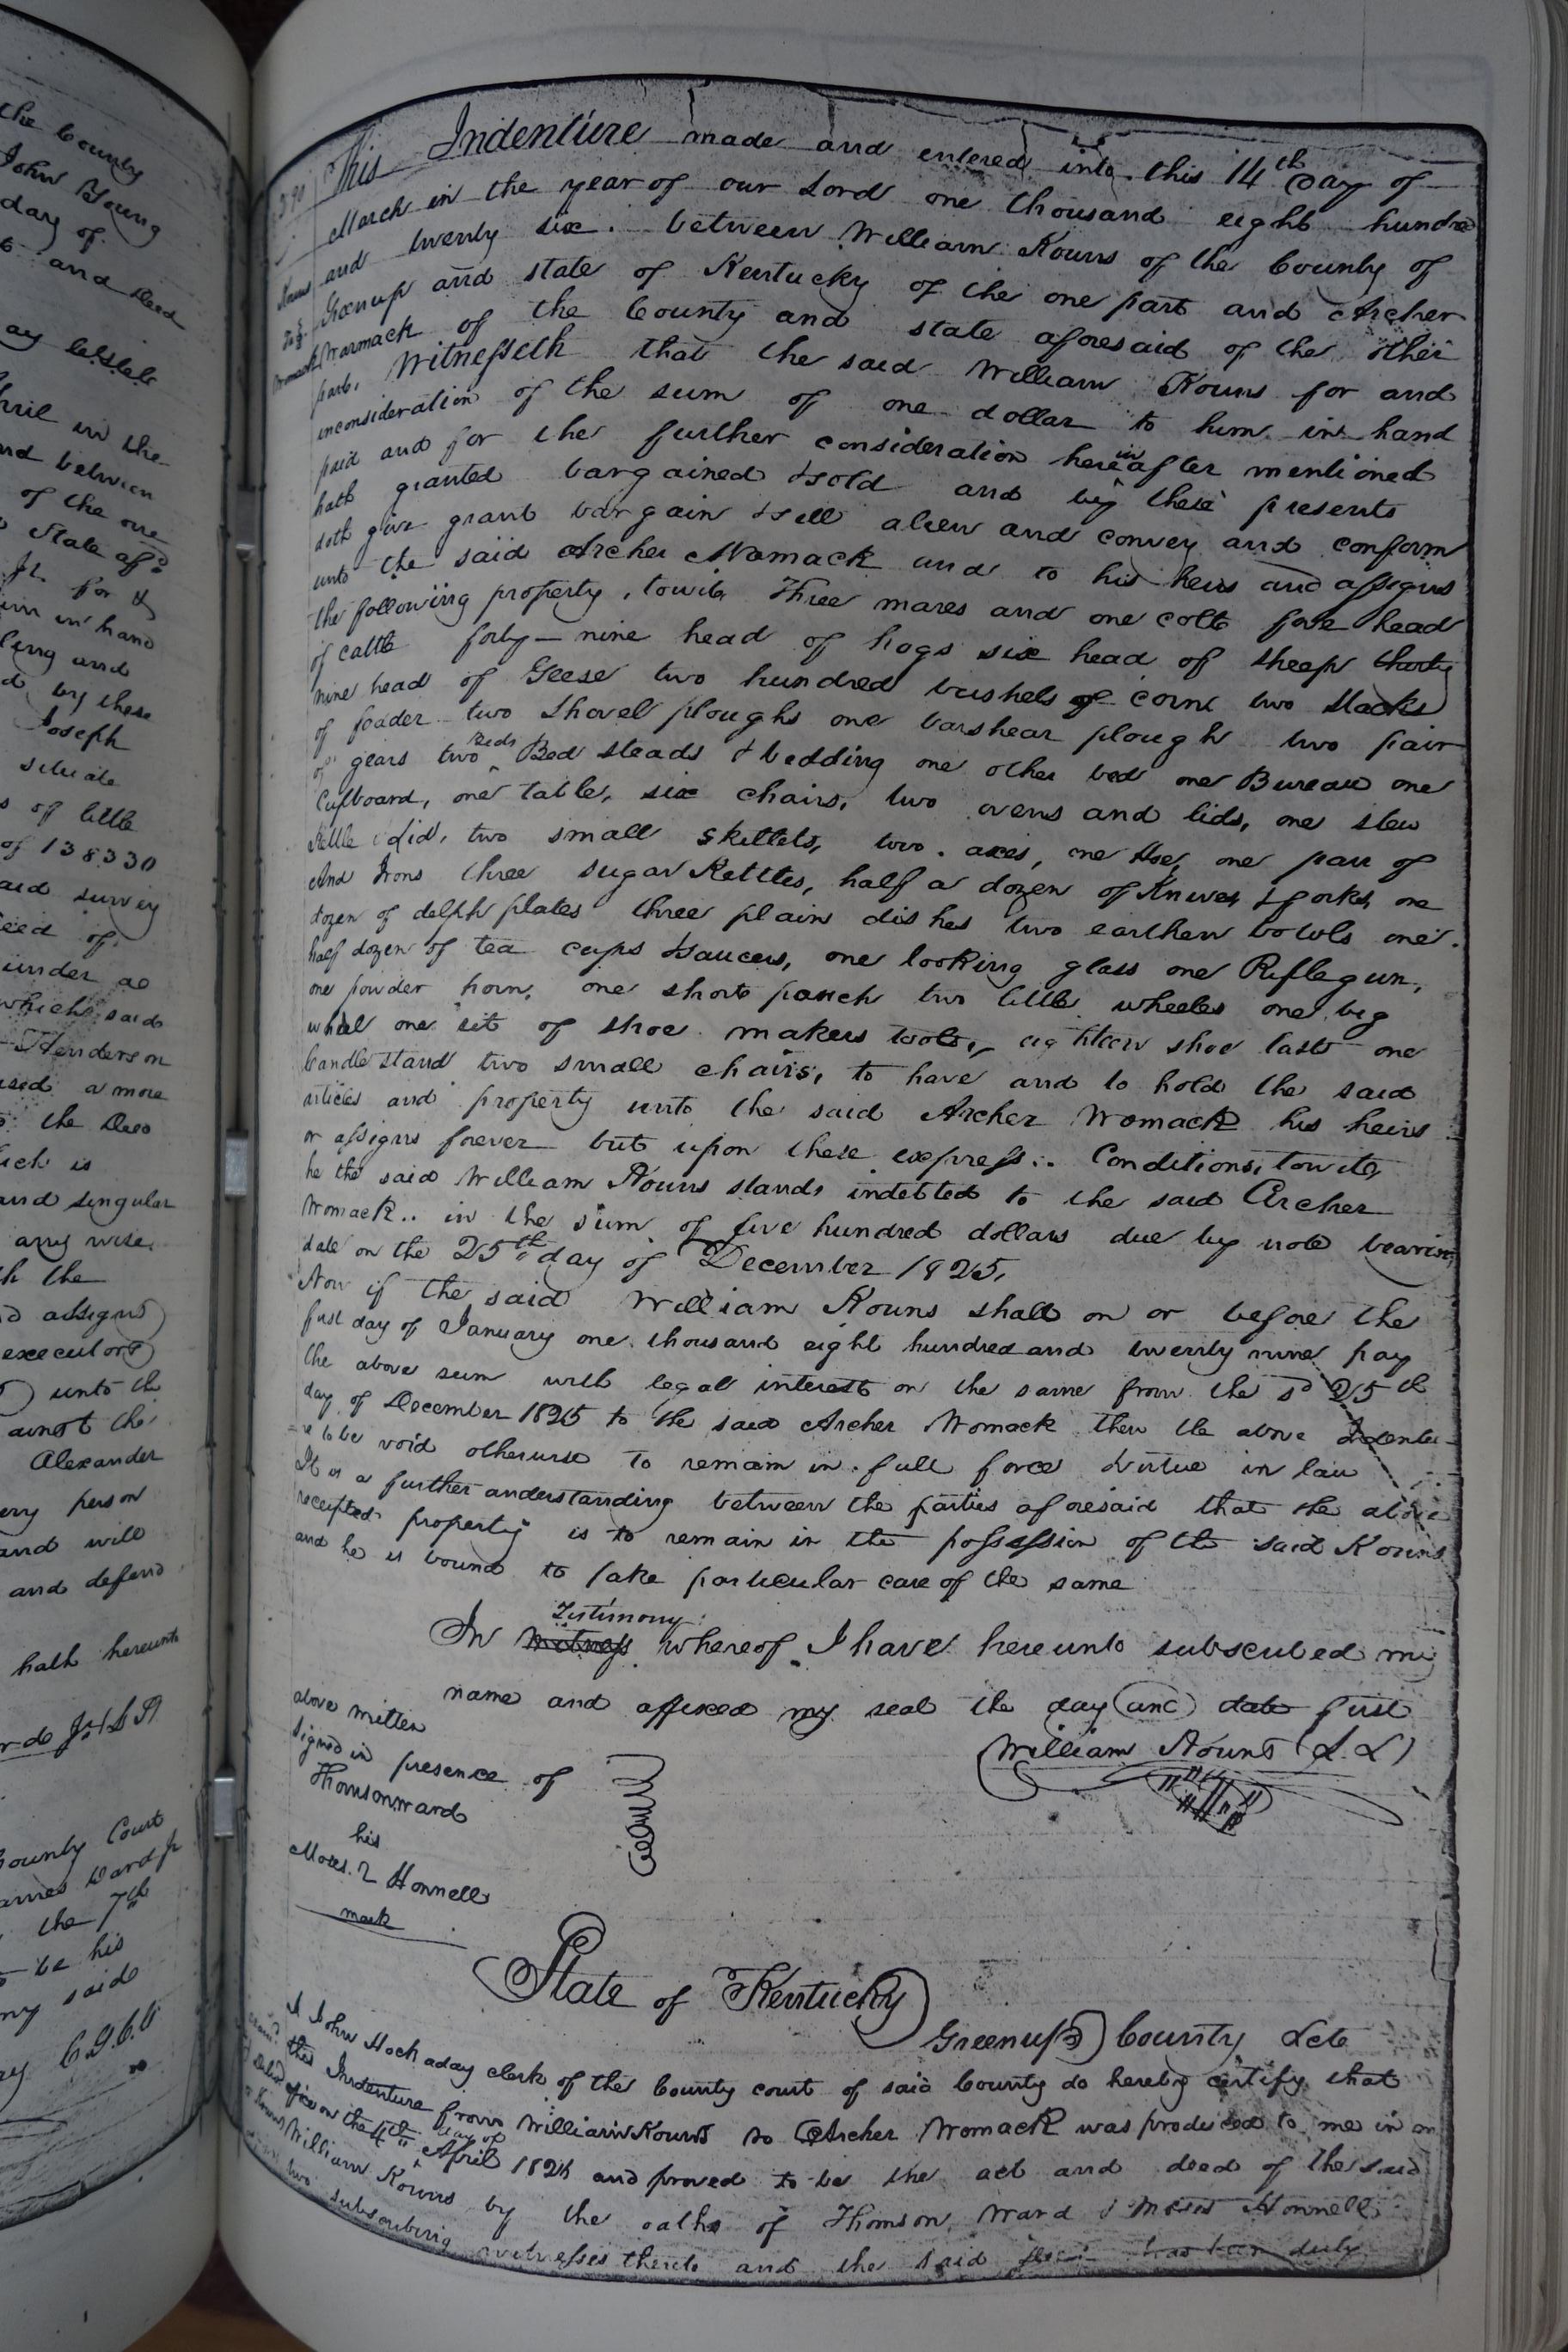 the County
John Young
day of
and Deed
April in the
and between
of the one
State afsd
Jr for &
him in hand
and
by these
Joseph
situate
of little
of 138330
said survey
of
under
which said
Henderson
a more
the Deed
which is
and singular
any wise
the
assigns
executors
unto the
against the
Alexander
every person
and will
and defend
hath hereunto
County Court
James Ward Jr
the 7th
to be his
my said
C.G.C.C
This Indenture made and entered into this 14th Day of
March in the year of our Lord one thousand eight hundred
and twenty six. between William Kouns of the County of
Kouns
Greenup and state of Kentucky of the one part and Archer
To
Warmack of the County and state aforesaid of the other
Womack
part. Witnesseth that the said William Kouns for and
inconsideration of the sum of one dollar to him in hand
paid and for the further consideration hereinafter mentioned
hath granted bargained & sold and by these presents
doth give grant bargain & sell alien and convey and conform
unto the said Archer Womack and to his heirs and assigns
the following property, towit. Three mares and one colt five head
of cattle forty-nine head of hogs six head of sheep thirty
nine head of Geese two hundred bushels of corn two stacks
of foader two shovel ploughs one barshear plough two pair
of gears two Beds Bed steads & bedding one other bed one Bureau one
Cupboard, one table, six chairs, two ovens and lids, one stew
Kettle & lid, two small skillets, two axes, one Hoe, one pair of
And Irons three sugar Kettles, half a dozen of Knives & forks, one
dozen of delph plates three plain dishes two earthen bowls one
half dozen of tea cups & saucers, one looking glass one Riflegun,
one powder horn, one shot pouch two little wheeles one big
wheel one sit of shoe makers tools, eighteen shoe lasts one
Candle stand two small chairs, to have and to hold the said
articles and property unto the said Archer Womack his heirs
or assigns forever but upon these express.. Conditions, towit,
he the said William Kouns stands indebted to the said Archer
Womack.. in the sum of five hundred dollars due by note bearing
date on the 25th day of December 1825.
Now if the said William Kouns shall on or before the
first day of January one thousand eight hundred and twenty nine pay
the above sum with legal interest on the same from the sd 25th
day of December 1825 to the said Archer Womack then the above Indentu-
=re to be void otherwise to remain in full force & virtue in law
It is a further understanding between the parties aforesaid that the above
receipted property is to remain in the possession of the said Kouns
and he is bound to take particular care of the same
In Witness Testimony whereof I have hereunto subscribed my
name and affixed my seal the day and date first
above written
William Kouns (L.S)
Signed in presence of
Thomson Ward
his
Moses Honnell
mark
State of Kentucky
Greenup County Sct
I John Hockaday clerk of the County court of said County do hereby certify that
this Indenture from William Kouns to Archer Womack was produced to me in
office on the day of April 1826 and proved to be the act and deed of the said
William Kouns by the oaths of Thomson Ward & Moses Honnell
two subscribing witnesses thereto and the said has been duly